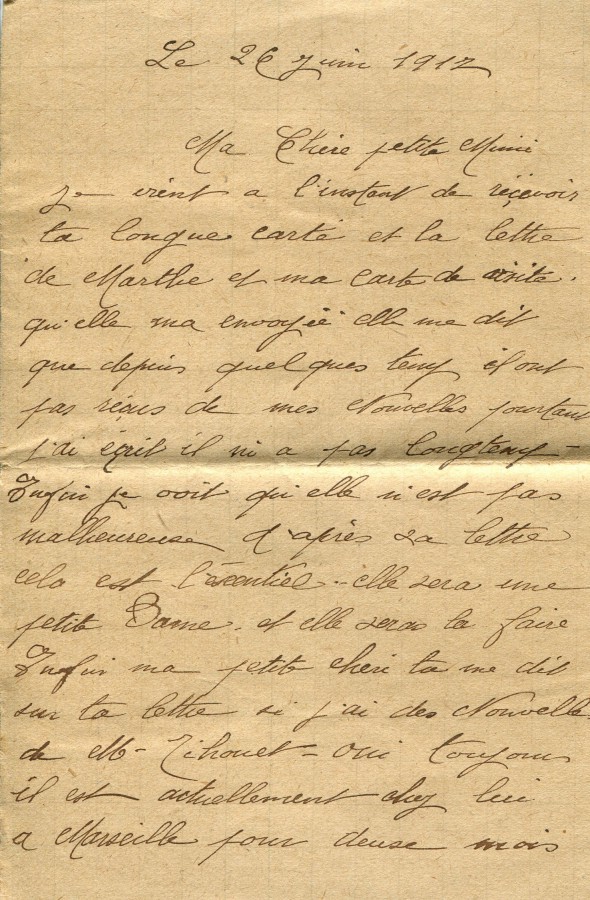 Le 26 juin 1917
Ma Chère petite Mimi
je vient a l'instant de réçevoir
ta longue carte et la lettre
de Marthe et ma carte de visite.
qu'elle ma envoyié elle me dit
que depuis quelques temp il ont
pas réçus de mes Nouvelles pourtant
j'ai éçrit il ni a pas longtemp -
Enfin je voit qu'elle n'est pas
malheureuse d'après sa lettre
cela est l'éscentiel .. elle sera une
petite Dame. et elle seras la faire
Enfin ma petite chéri ta me dit
sur ta lettre si j'ai des Nouvelles
de M- Tihouet = oui toujours
il est actuellement chez lui
a Marseille pour deuse mois